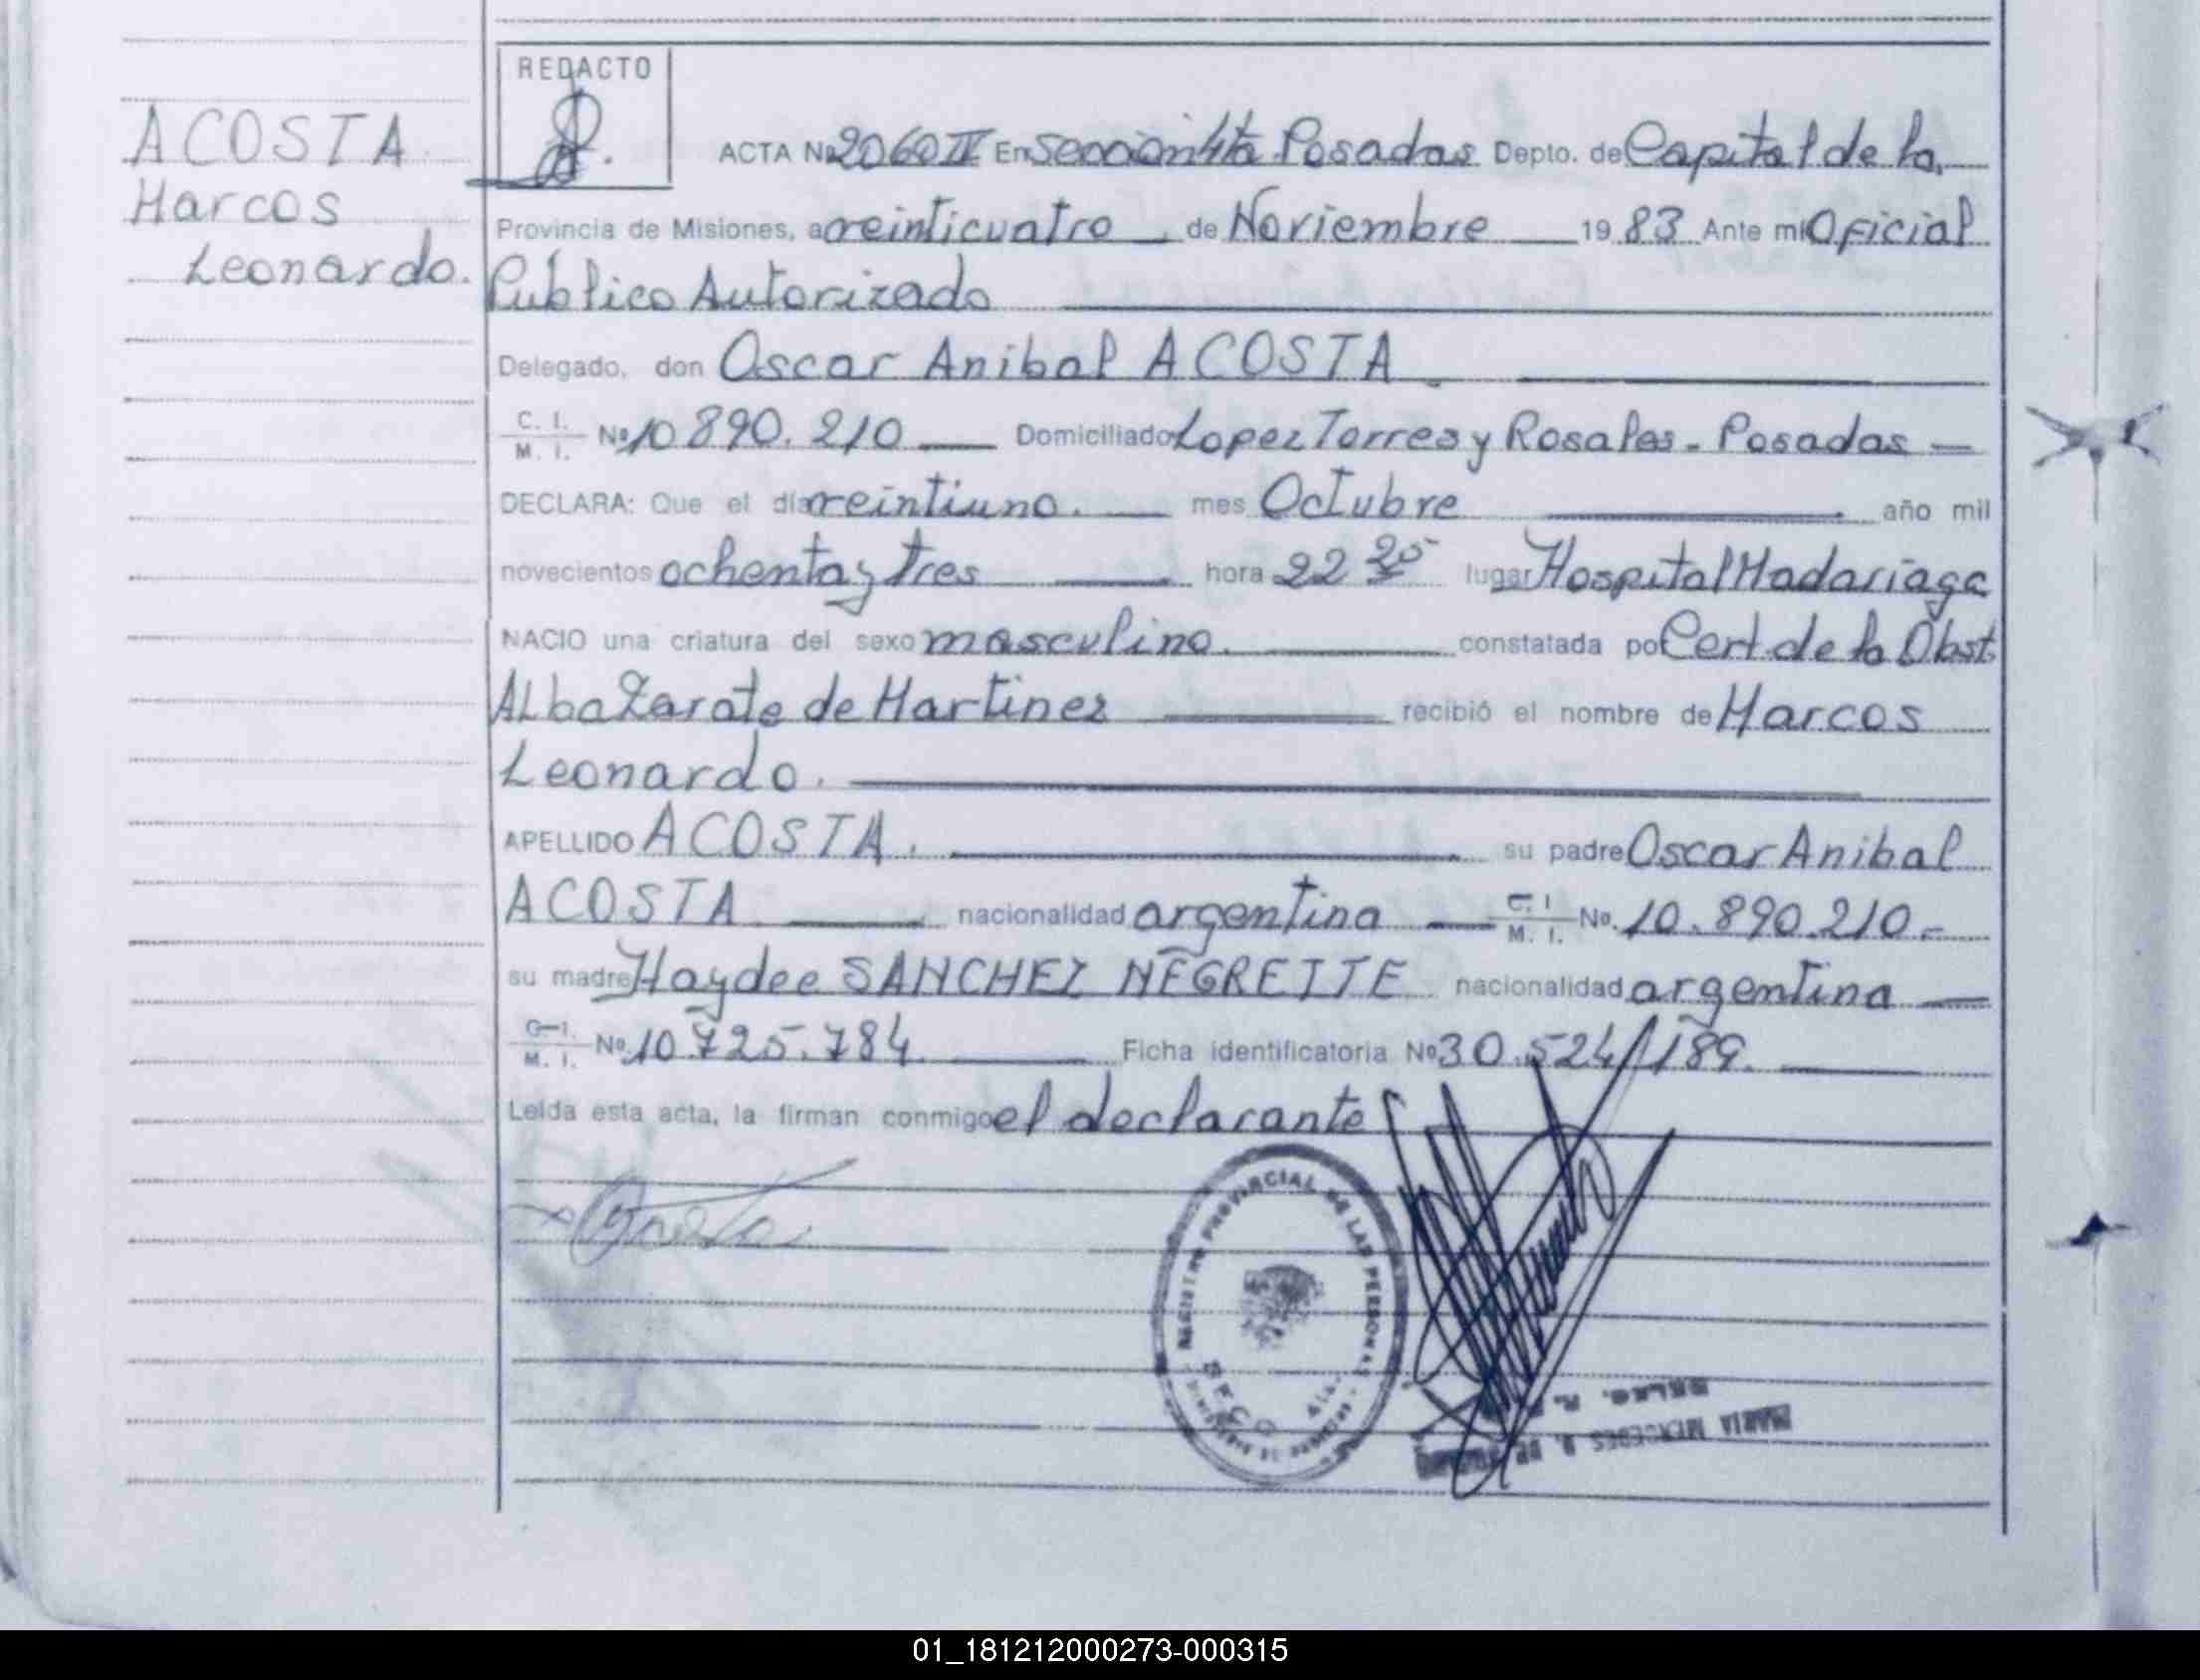 REDACTO
ACOSTA
Marcos
Leonardo.
ACTA Nº 2060 IV En sección 4ta Posadas Depto. de Capital de la
Provincia de Misiones, a veinticuatro de Noviembre 1983 Ante mi Oficial
Público Autorizado
Delegado, don Oscar Anibal ACOSTA
C. I.
M. I. Nº 10.890.210 Domiciliado Lopez Torres y Rosales - Posadas —
DECLARA: Que el día veintiuno. mes Octubre año mil
novecientos ochenta y tres hora 22 25 lugar Hospital Madariaga
NACIO una criatura del sexo masculino. constatada por Cert. de la Obst.
Alba Zarate de Martinez recibió el nombre de Marcos
Leonardo.
APELLIDO ACOSTA. su padre Oscar Anibal
ACOSTA nacionalidad argentina C. I.
M. I. No. 10.890.210.-
su madre Haydee SANCHEZ NEGRETTE nacionalidad argentina —
C. I.
M. I. Nº 10.725.784. Ficha identificatoria Nº 30.524/189.
Leída esta acta, la firman conmigo el declarante
REGISTRO PROVINCIAL DE LAS PERSONAS
MARIA MERCEDES
01_181212000273-000315